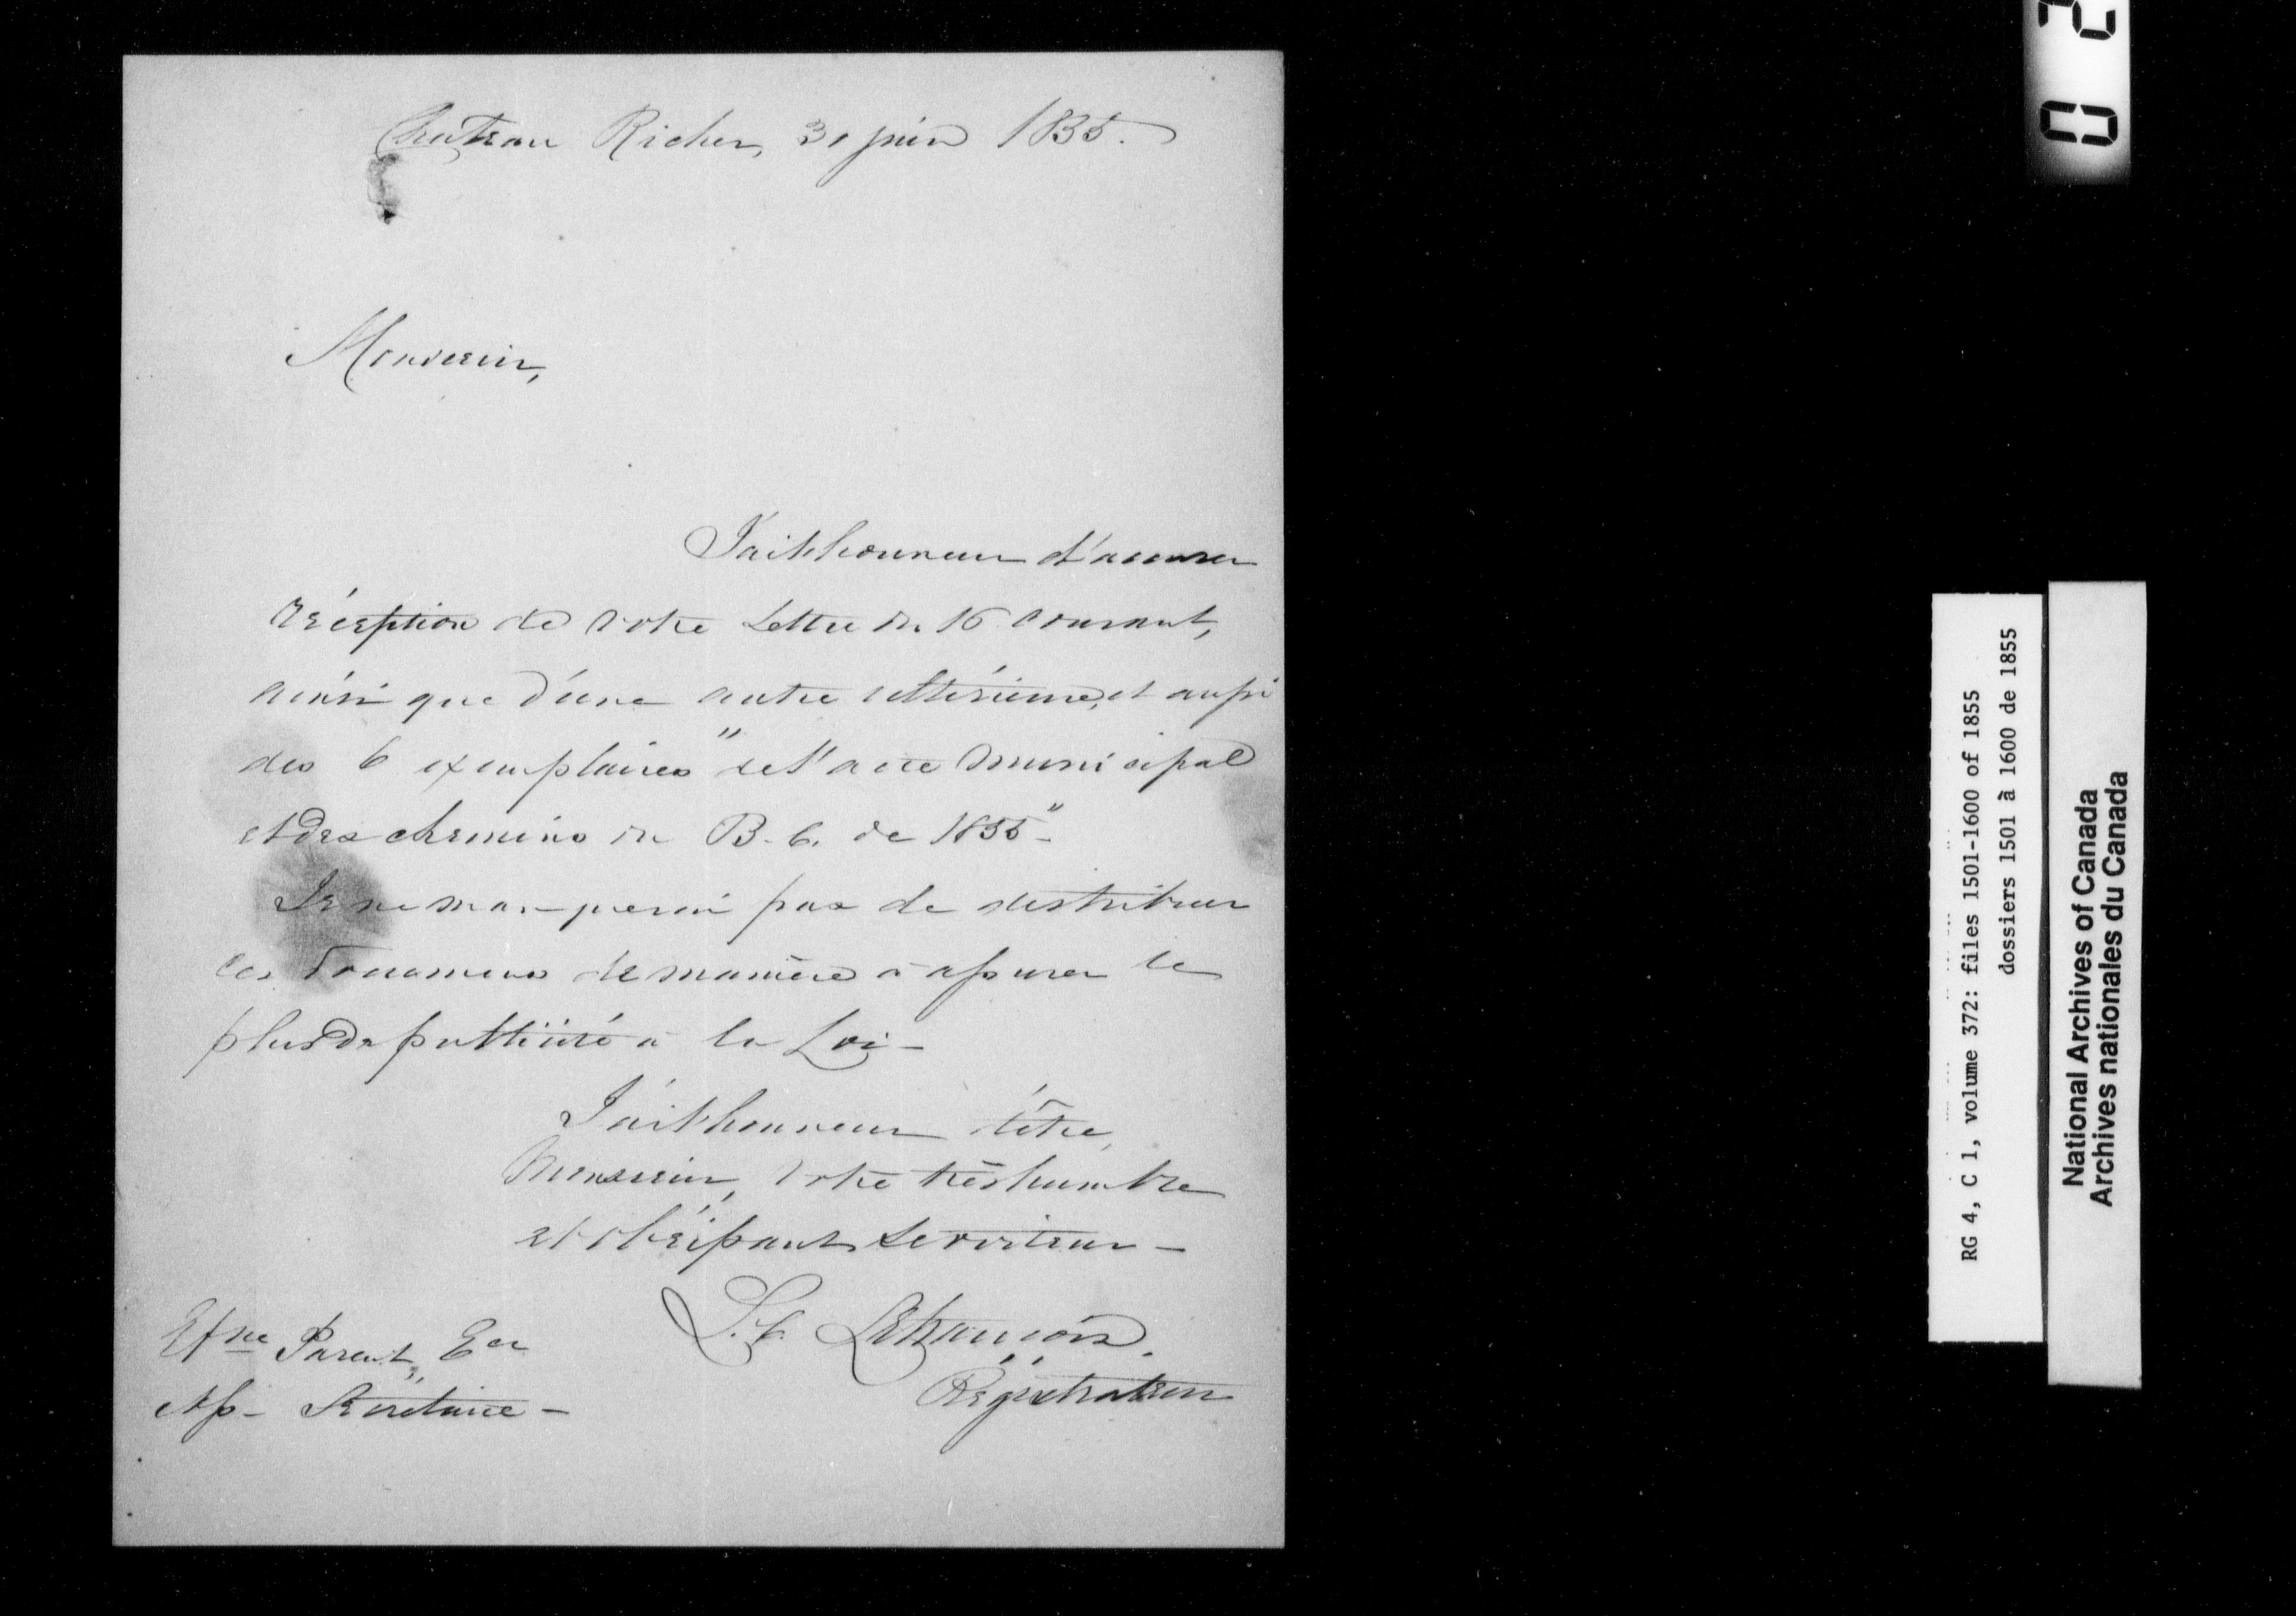 Chateau Richer, 30 juin 1855.
Monsieur,
J'ai l'honneur d'accuser
réception de votre Lettre du 16 courant,
ainsi que d'une autre ultérieure, et aussi
des 6 exemplaires "de l'acte municipal
et des chemins du B. C. de 1855"-
Je ne manquerai pas de distribuer
ces documens de manière à assurer le
plus de publicité à la Loi -
J'ai l'honneur d'être,
Monsieur, votre très humble
et obéissant Serviteur -
L. C. Lefrançois.
Régistrateur
Etne Parent, Ecr
Ass- Secrétaire -
RG 4, C 1, volume 372: files 1501-1600 of 1855
dossiers 1501 à 1600 de 1855
National Archives of Canada
Archives nationales du Canada
0 2